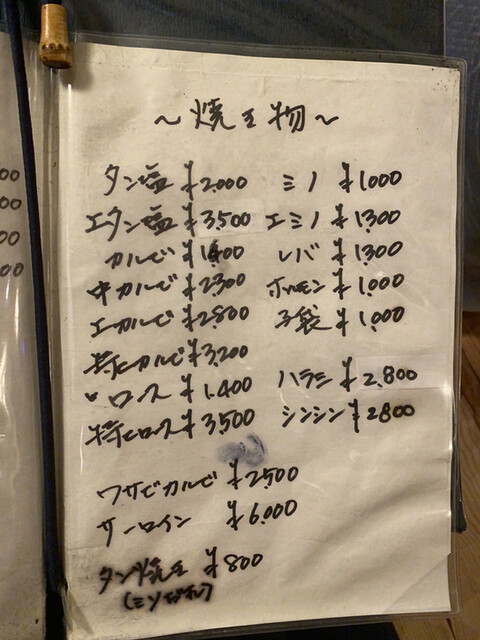 ～焼き物～
タン塩 ¥2,000
上タン塩 ¥3,500
カルビ ¥1,400
中カルビ ¥2,300
上カルビ ¥2,800
特上カルビ ¥3,200
ロース ¥1,400
特上ロース ¥3,500
ミノ ¥1,000
上ミノ ¥1,300
レバ ¥1,300
ホルモン ¥1,000
子袋 ¥1,000
ハラミ ¥2,800
シンシン ¥2800
ワサビカルビ ¥2,500
サーロイン ¥6,000
タン焼き ¥800
(ミソだれ)